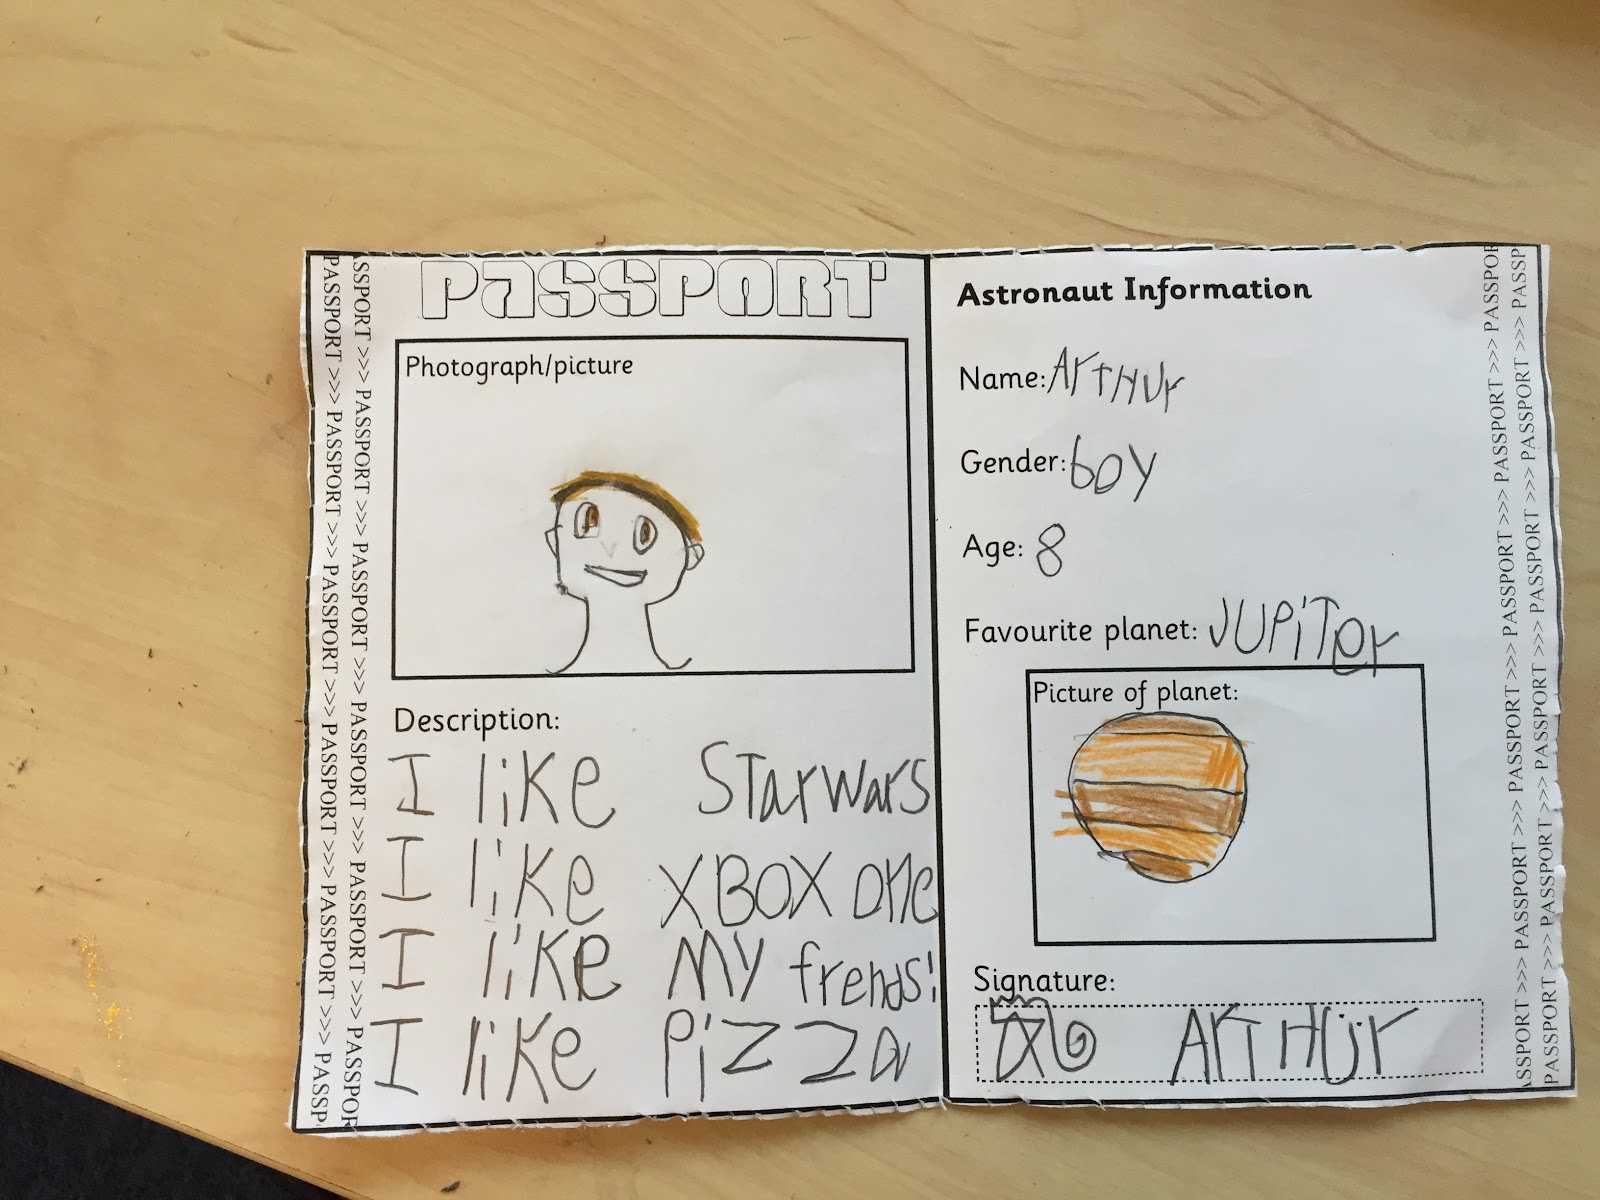 PASSPORT
Photograph/picture
Description:
I like Starwars
I like XBOX one
I like My frends!
I like Pizza
Astronaut Information
Name: ArTHUr
Gender: boy
Age: 8
Favourite planet: JUPiTer
Picture of planet:
Signature:
ArTHÜr
PASSPORT >>> PASSPORT >>> PASSPORT >>> PASSPORT >>> PASSPORT >>> PASSP
ASSPORT >>> PASSPORT >>> PASSPORT >>> PASSPORT >>> PASSPORT >>> PASSPOR
ASSPORT >>> PASSPORT >>> PASSPORT >>> PASSPORT >>> PASSPORT >>> PASSPOR
PASSPORT >>> PASSPORT >>> PASSPORT >>> PASSPORT >>> PASSPORT >>> PASSP